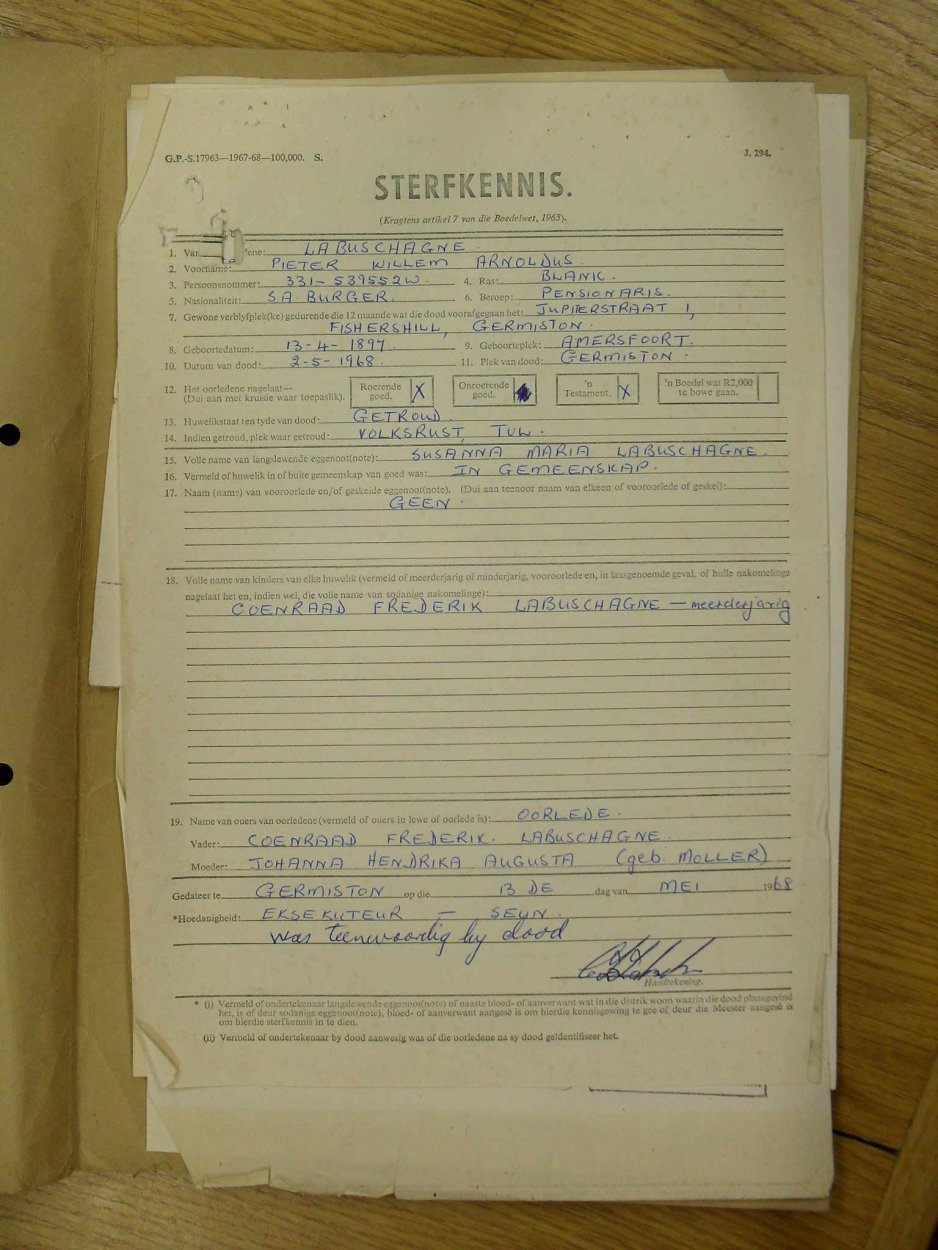 G.P.-S.17963—1967-68—100,000. S. J. 294.
STERFKENNIS.
(Kragtens artikel 7 van die Boedelwet, 1965).
1. Van ene: LABUSCHAGNE.
2. Voorname: PIETER WILLEM ARNOLDUS.
3. Persoonsnommer: 331-539552W. 4. Ras: BLANK.
5. Nasionaliteit: S.A. BURGER. 6. Beroep: PENSIONARIS.
7. Gewone verblyfplek(ke) gedurende die 12 maande wat die dood voorafgegaan het: JUPITERSTRAAT 1,
FISHERSHILL, GERMISTON.
8. Geboortedatum: 13-4-1897. 9. Geboorteplek: AMERSFOORT.
10. Datum van dood: 2-5-1968. 11. Plek van dood: GERMISTON.
12. Het oorledene nagelaat— Roerende goed. X Onroerende goed. 'n Testament. X 'n Boedel wat R2,000 te bowe gaan.
(Dui aan met kruisie waar toepaslik).
13. Huwelikstaat ten tyde van dood: GETROUD.
14. Indien getroud, plek waar getroud: VOLKSRUST, TVL.
15. Volle name van langslewende eggenoot(note): SUSANNA MARIA LABUSCHAGNE.
16. Vermeld of huwelik in of buite gemeenskap van goed was: IN GEMEENSKAP.
17. Naam (name) van vooroorlede en/of geskeide eggenoot(note). (Dui aan teenoor naam van elkeen of vooroorlede of geskei):
GEEN.
18. Volle name van kinders van elke huwelik (vermeld of meerderjarig of minderjarig, vooroorlede en, in laasgenoemde geval, of hulle nakomelinge
nagelaat het en, indien wel, die volle name van sodanige nakomelinge):
COENRAAD FREDERIK LABUSCHAGNE — meerderjarig
19. Name van ouers van oorledene (vermeld of ouers in lewe of oorlede is): OORLEDE.
Vader: COENRAAD FREDERIK. LABUSCHAGNE.
Moeder: JOHANNA HENDRIKA AUGUSTA (geb. MOLLER)
Gedateer te GERMISTON op die 13 DE dag van MEI 1968
*Hoedanigheid: EKSEKUTEUR — SEUN.
Was teenwoordig by dood
Handtekening.
* (i) Vermeld of ondertekenaar langslewende eggenoot(note) of naaste bloed- of aanverwant wat in die distrik woon waarin die dood plaasgevind
het, is of deur sodanige eggenoot(note), bloed- of aanverwant aangesê is om hierdie kennisgewing te gee of deur die Meester aangesê is
om hierdie sterfkennis in te dien.
(ii) Vermeld of ondertekenaar by dood aanwesig was of die oorledene na sy dood geïdentifiseer het.